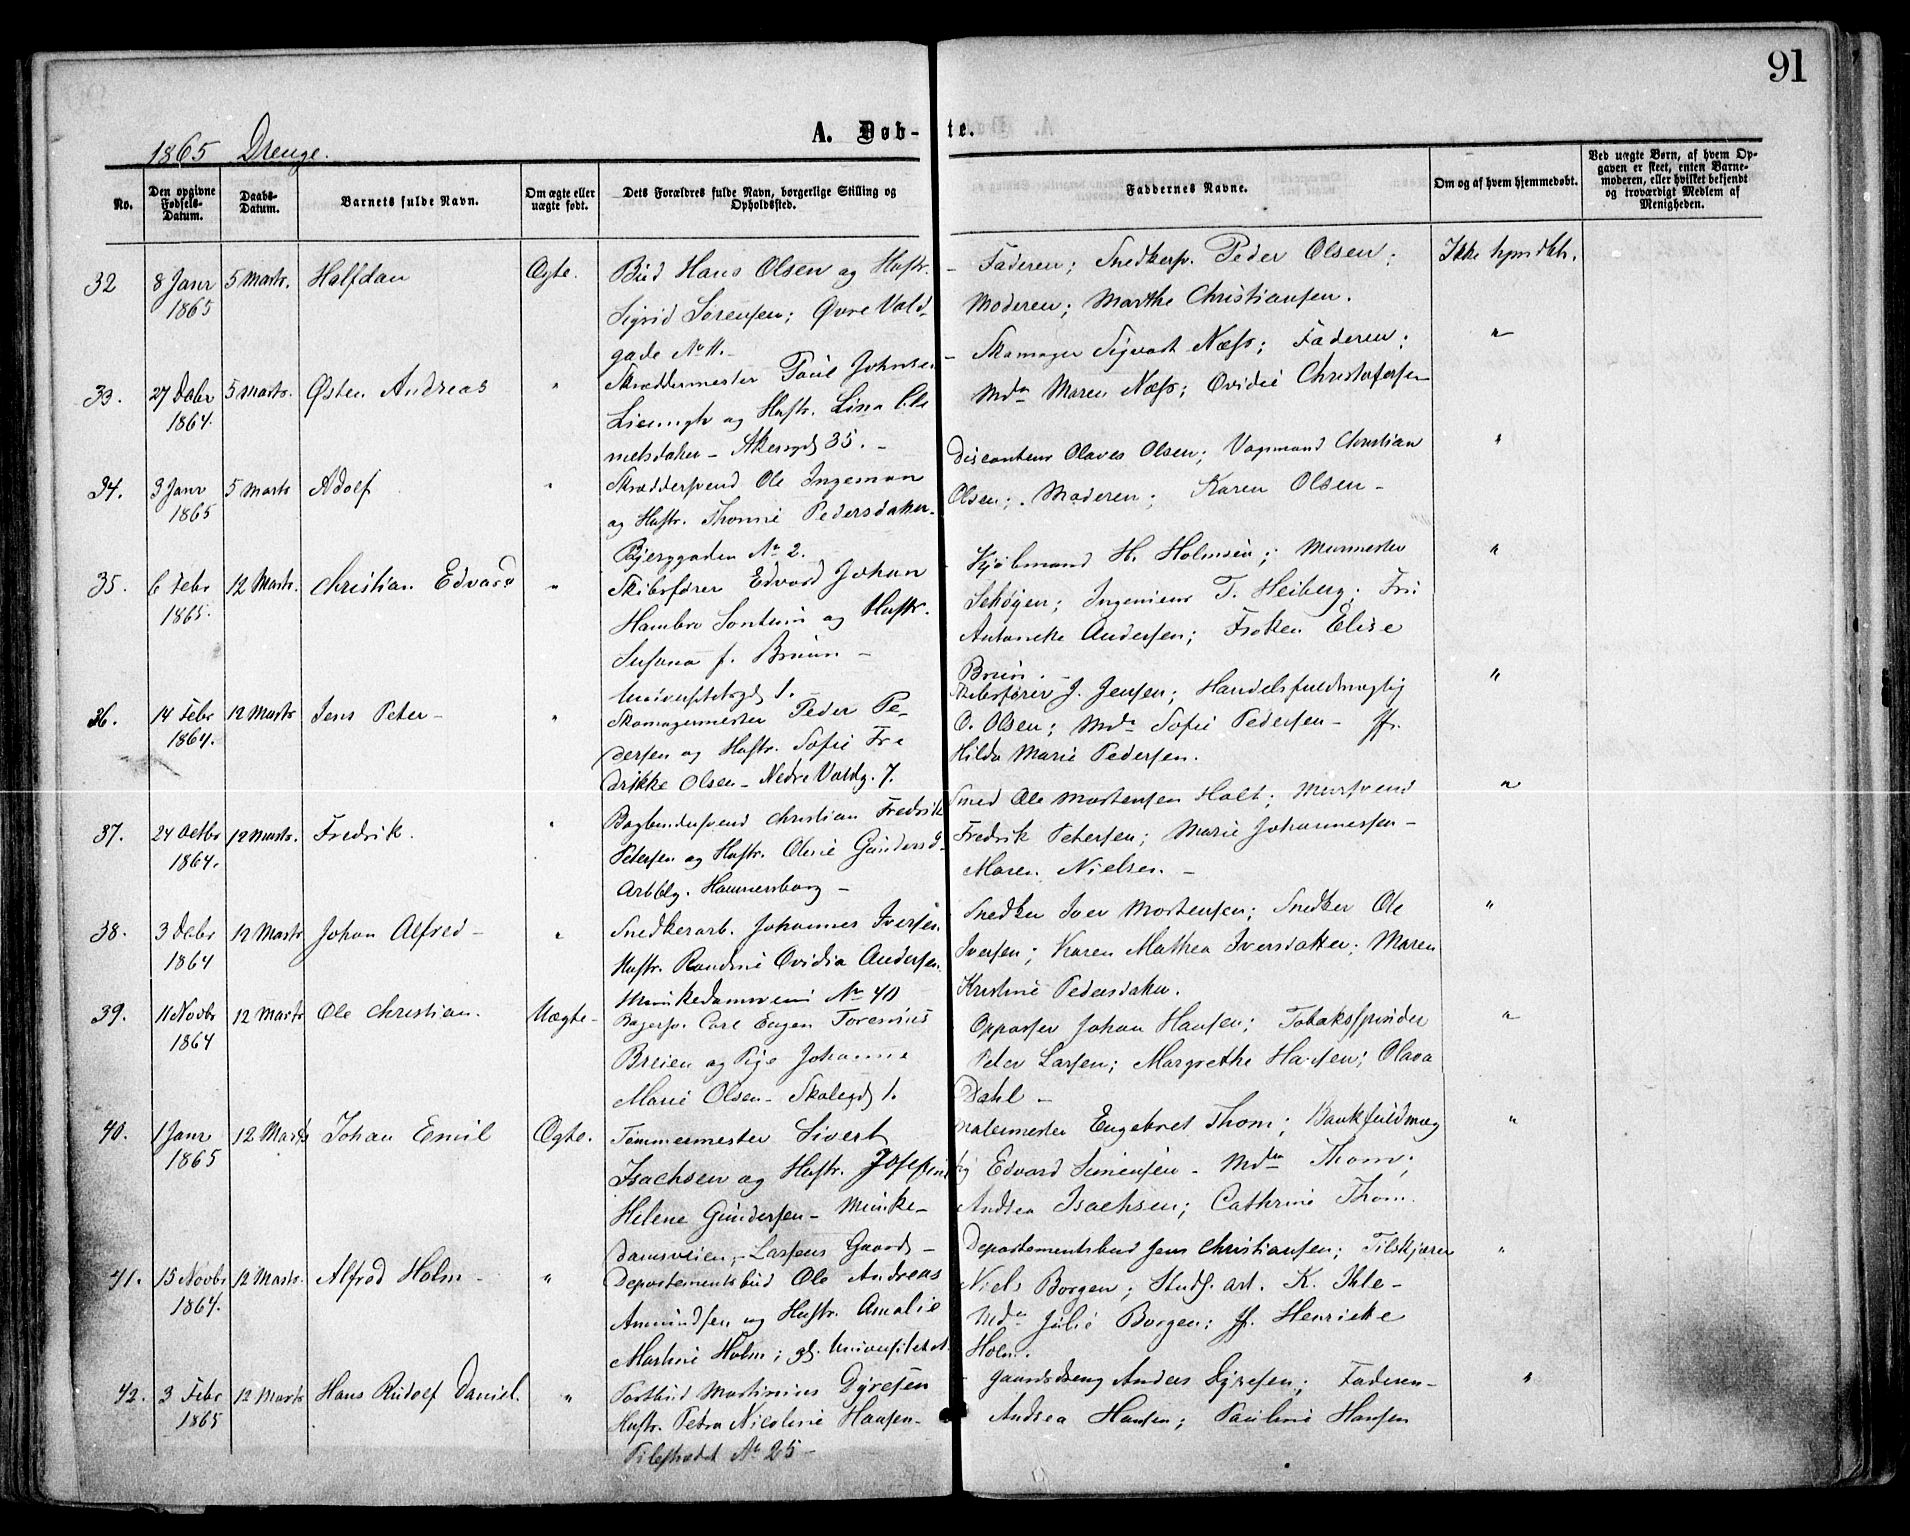 91
A. Døb-te.
1865 Drenge.
No.
Den opgivne Fødsels-Datum.
Daabs-Datum.
Barnets fulde Navn.
Om ægte eller uægte født.
Dets Forældres fulde Navn, borgerlige Stilling og Opholdssted.
Faddernes Navne.
Om og af hvem hjemmedøbt.
Ved uægte Børn, af hvem Opgaven er skeet, enten Barnemoderen, eller hvilket bekjendt og troværdigt Medlem af Menigheden.
32 8 Janr 5 Marts. Halfdan Ægte. Bud Hans Olsen og Hustr. Faderen; Snedkersv. Peder Olsen; Ikke
1865 Sigrid Sørensen; Øvre Vold- Moderen; Marthe Christiansen.
gade No 11. Skomager Sigvart Næss; Faderen; "
33. 27 Debr 5 Marts. Østen Andreas " Skræddermester Paul Johnsen Mdm Maren Næss; Ovidie Christofersen
1864. og Hustr. Lina
Akersgd 35. Olaves Olsen; Christian "
34. 3 Janr 5 Marts Adolf " Skræddersvend Ole Ingeman Olsen; Moderen; Karen Olsen-
1865 og Hustr. Thomine Pedersdatter-
Bjerggaden No 2. H. Holmsen; Murmester "
35. 6 Febr 12 Marts. Christian Edvard " Skibsfører Edvard Johan Ingeniør T. Heiberg;
1865. Hambro og Hustr. Andersen; Frøken Elise
Susana f. Bruun - Bruun. -
Universitetsgd 1. Skibsfører J. Jensen; Handelsfuldmægtig "
36. 14 Febr 12 Marts Jens Peter- " Skomagermester Peder Pe- O. Olsen; Mdm Sofie Pedersen- Jfr.
1864. dersen og Hustr. Sofie Fre Hilda Marie Pedersen.
drikke Olsen- Nedre Voldg. 7.
37. 24 Octbr 12 Marts. Fredrik. " Bogbindersvend Christian Fredrik Smed Ole Mortensen Holt; Mursvend "
1864. Petersen og Hustr. Olesie Gundersd Fredrik Petersen; Marie Johannessen-
Hammersborg - Maren Nielsen. -
38. 3 Debr 12 Marts Johan Alfred- " Snedkerarb. Johannes Iversen Snedker Iver Mortensen; Snedker Ole "
1864 Hustr. Randine Ovidia Andersen Iversen; Karen Mathea Iversdatter; Maren
Munkedamsveien No 40 Kristine Pedersdatter.
39. 11 Novbr 12 Marts Ole Christian. Uægte- Bagersv. Carl Eugen Oppasser Johan Hansen; Tobaksspinder "
1864 Breien og Pige Johanne Peter Larsen; Margrethe Hansen; Olava
Marie Olsen- Skolegd 1. Dahl -
40. 1 Janr 12 Marts Johan Emil Ægte. Tømmermester Sivert Malermester Engebret Thom; Bankfuldmæg "
1865 Isachsen og Hustr. Josefine tig Edvard Simensen- Mdm Thom;
Helene Gundersen- Munke- Andrea Isachsen; Cathrine Thom.
damsveien, Larsens Gaard- Departementsbud Jens Christiansen; "
41. 15 Novbr 12 Marts. Alfred Holm- " Departementsbud Ole Andreas Niels Borgen; Stud. art. K. Ihle-
1864. Amundsen og Hustr. Amalie Mdm Julie Borgen; Jfr. Henrikke
Martine Holm; gl. Universitetet. Holm.
42. 3 Febr 12 Marts Hans Rudolf Daniel. " Postbud Martinius Dyresen Gaardsdreng Anders Dyresen; Faderen- "
1865 Hustr. Petra Nicoline Hansen- Andrea Hansen; Pauline Hansen
Pilestrædet No 25-